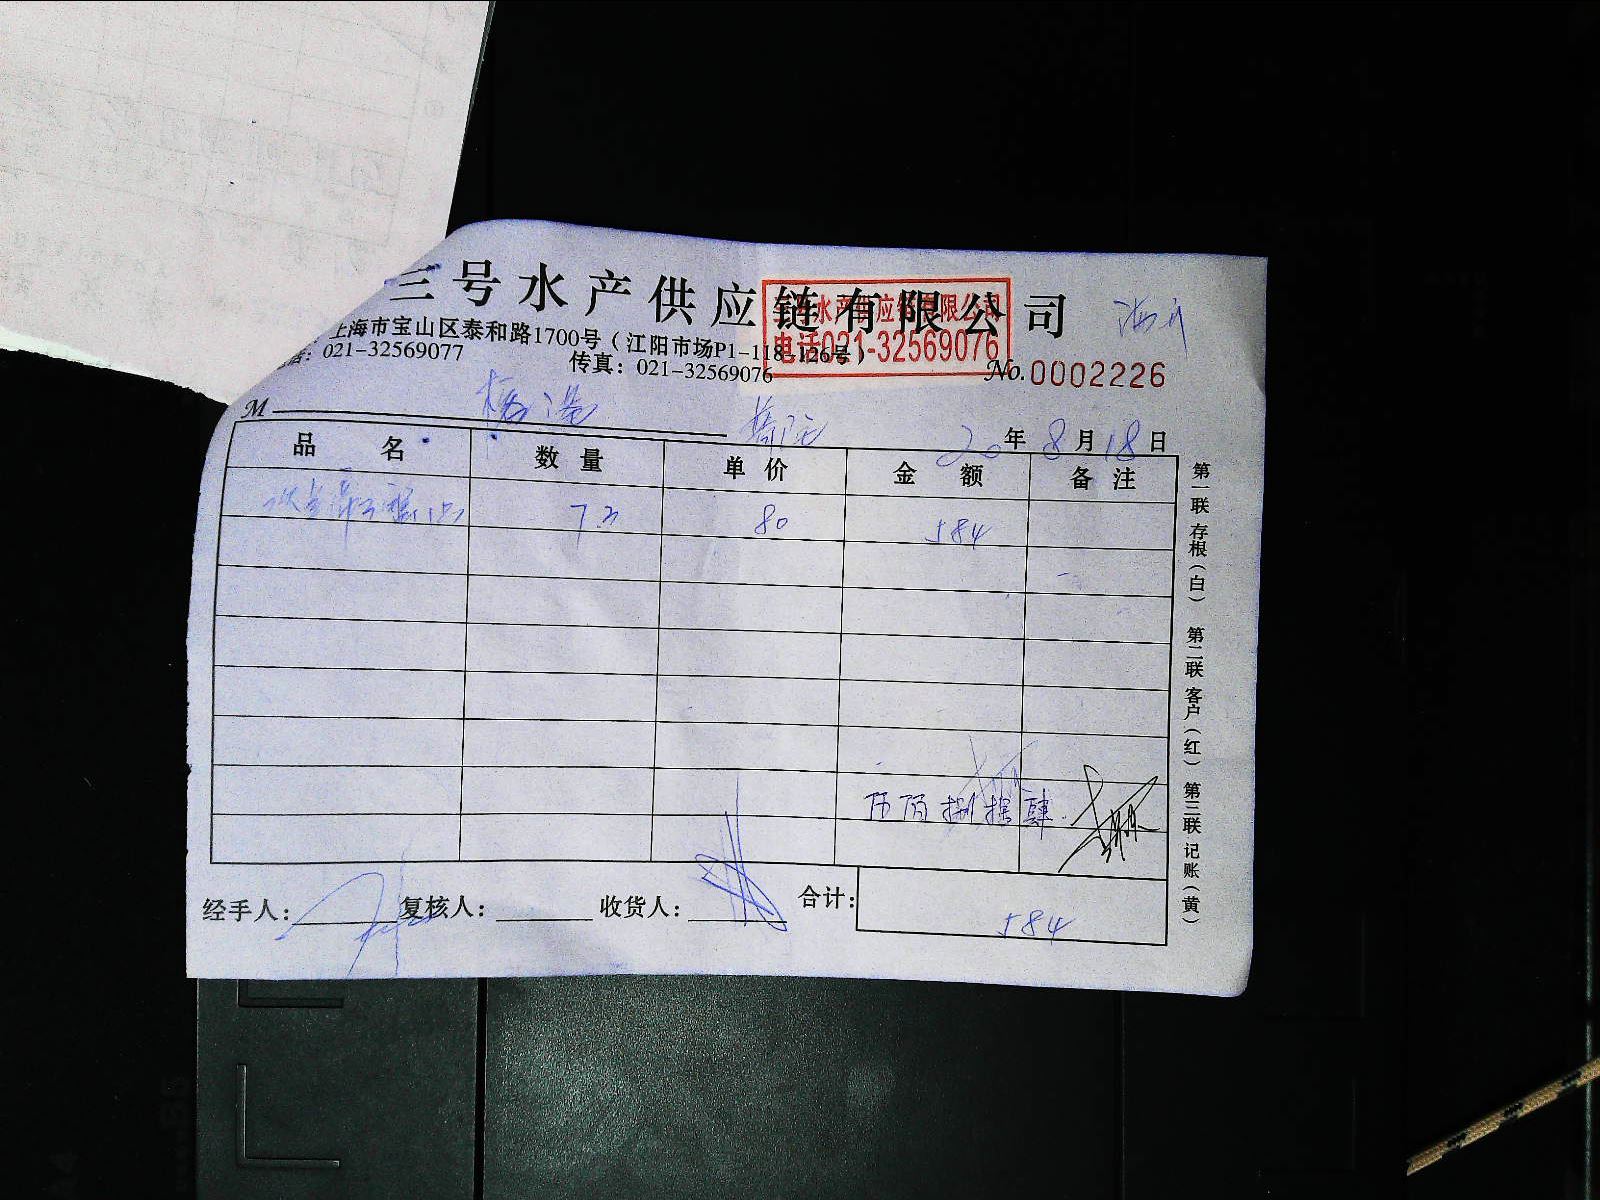 三号水产供应链有限公司
上海市宝山区泰和路1700号（江阳市场P1-118-126号）
话：021-32569077 传真：021-32569076
三号水产供应链有限公司
电话021-32569076
No.0002226
M
20年8月18日
品名 数量 单价 金额 备注
7.3 80 584
伍佰捌拾肆
经手人： 复核人： 收货人： 合计：584
第一联 存根（白） 第二联 客户（红） 第三联 记账（黄）